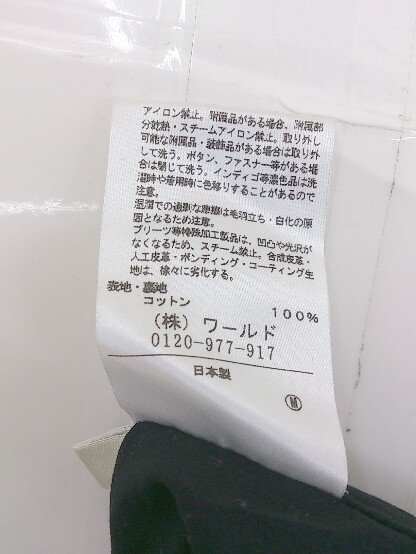 アイロン禁止。附属品がある場合、附属部
分乾熱・スチームアイロン禁止。取り外し
可能な附属品・装飾品がある場合は取り外
して洗う。ボタン、ファスナー等がある場
合は閉じて洗う。インディゴ等濃色品は洗
濯時や着用時に色移りすることがあるので
注意。
湿潤での過剰な摩擦は毛羽立ち・白化の原
因となるため注意。
プリーツ等特殊加工製品は、凹凸や光沢が
なくなるため、スチーム禁止。合成皮革・
人工皮革・ボンディング・コーティング生
地は、徐々に劣化する。
表地・裏地
コットン 100%
(株) ワールド
0120-977-917
日本製
M